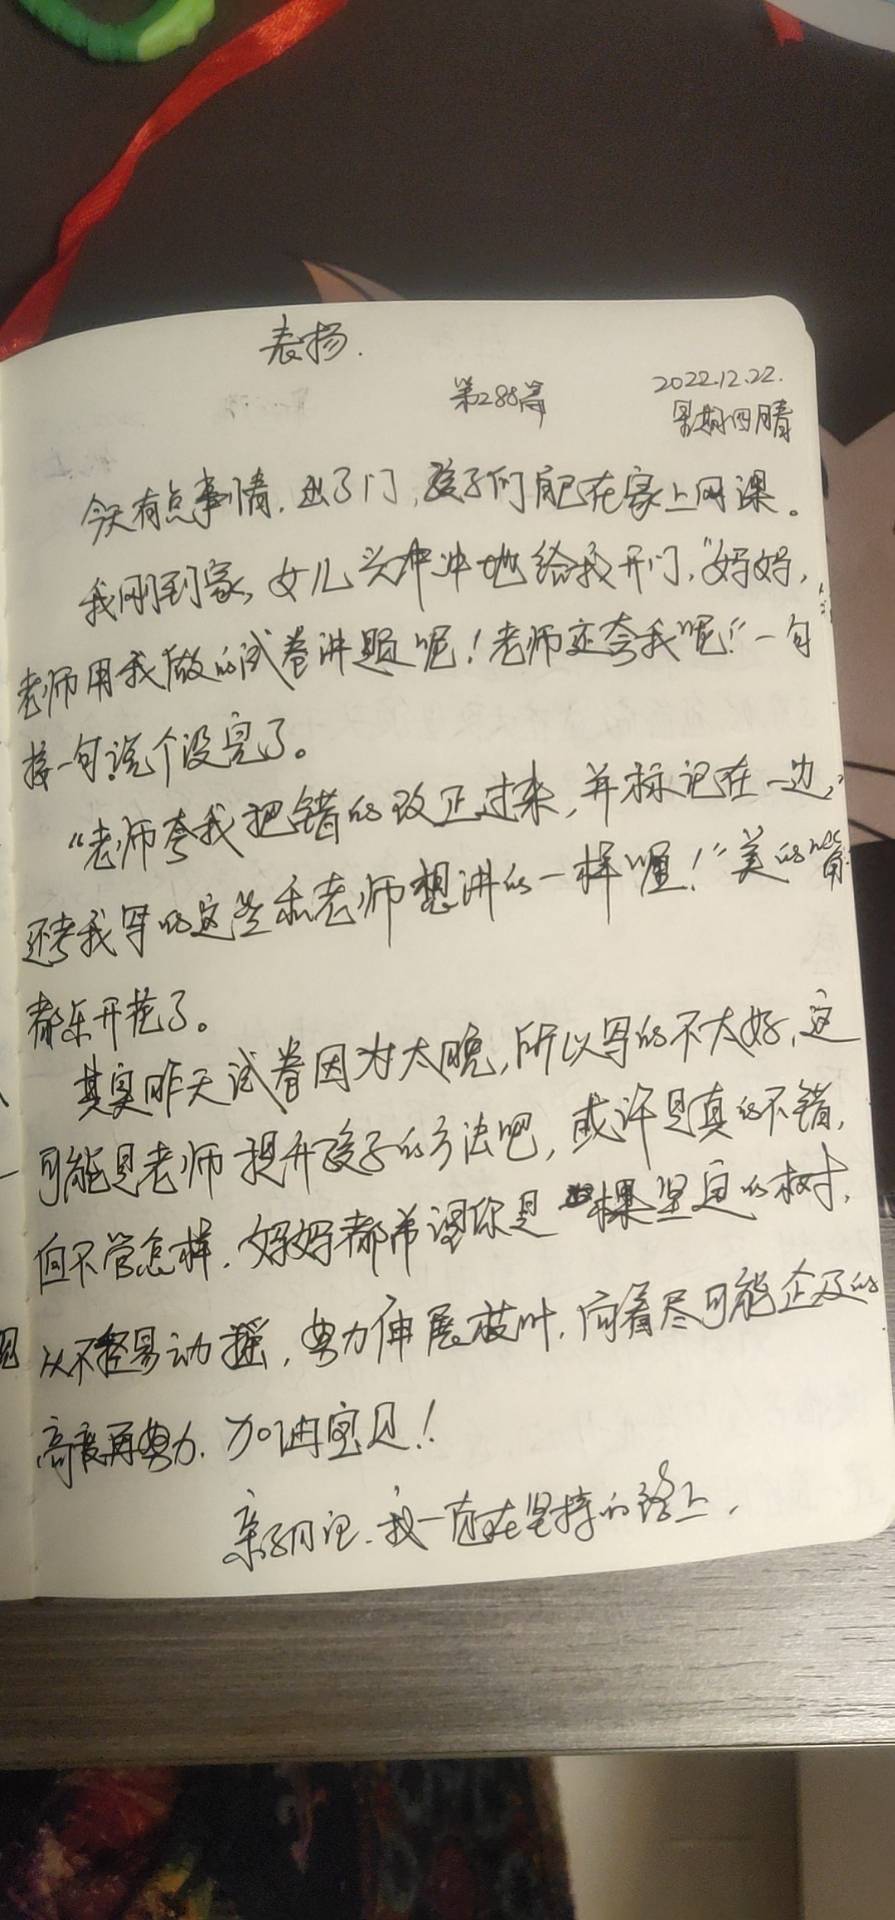 表扬.
第288篇
2022.12.22.
星期四晴
今天有点事情,出了门,孩子们自己在家上网课。
我刚到家,女儿兴冲冲地给我开门,“妈妈,
老师用我做的试卷讲题呢!老师还夸我呢!”一句
接一句说个没完了。
“老师夸我把错的改正过来,并标记在一边,
还夸我写的这些和老师想讲的一样喔!”美的嘴
都乐开花了。
其实昨天试卷因为太晚,所以写的不太好,这
可能是老师提升孩子的方法吧,或许是真的不错,
但不管怎样,妈妈都希望你是一棵坚定的树,
从不轻易动摇,努力伸展枝叶,向着尽可能企及的
高度再努力.加油宝贝!
亲子日记.我一直在坚持的路上.